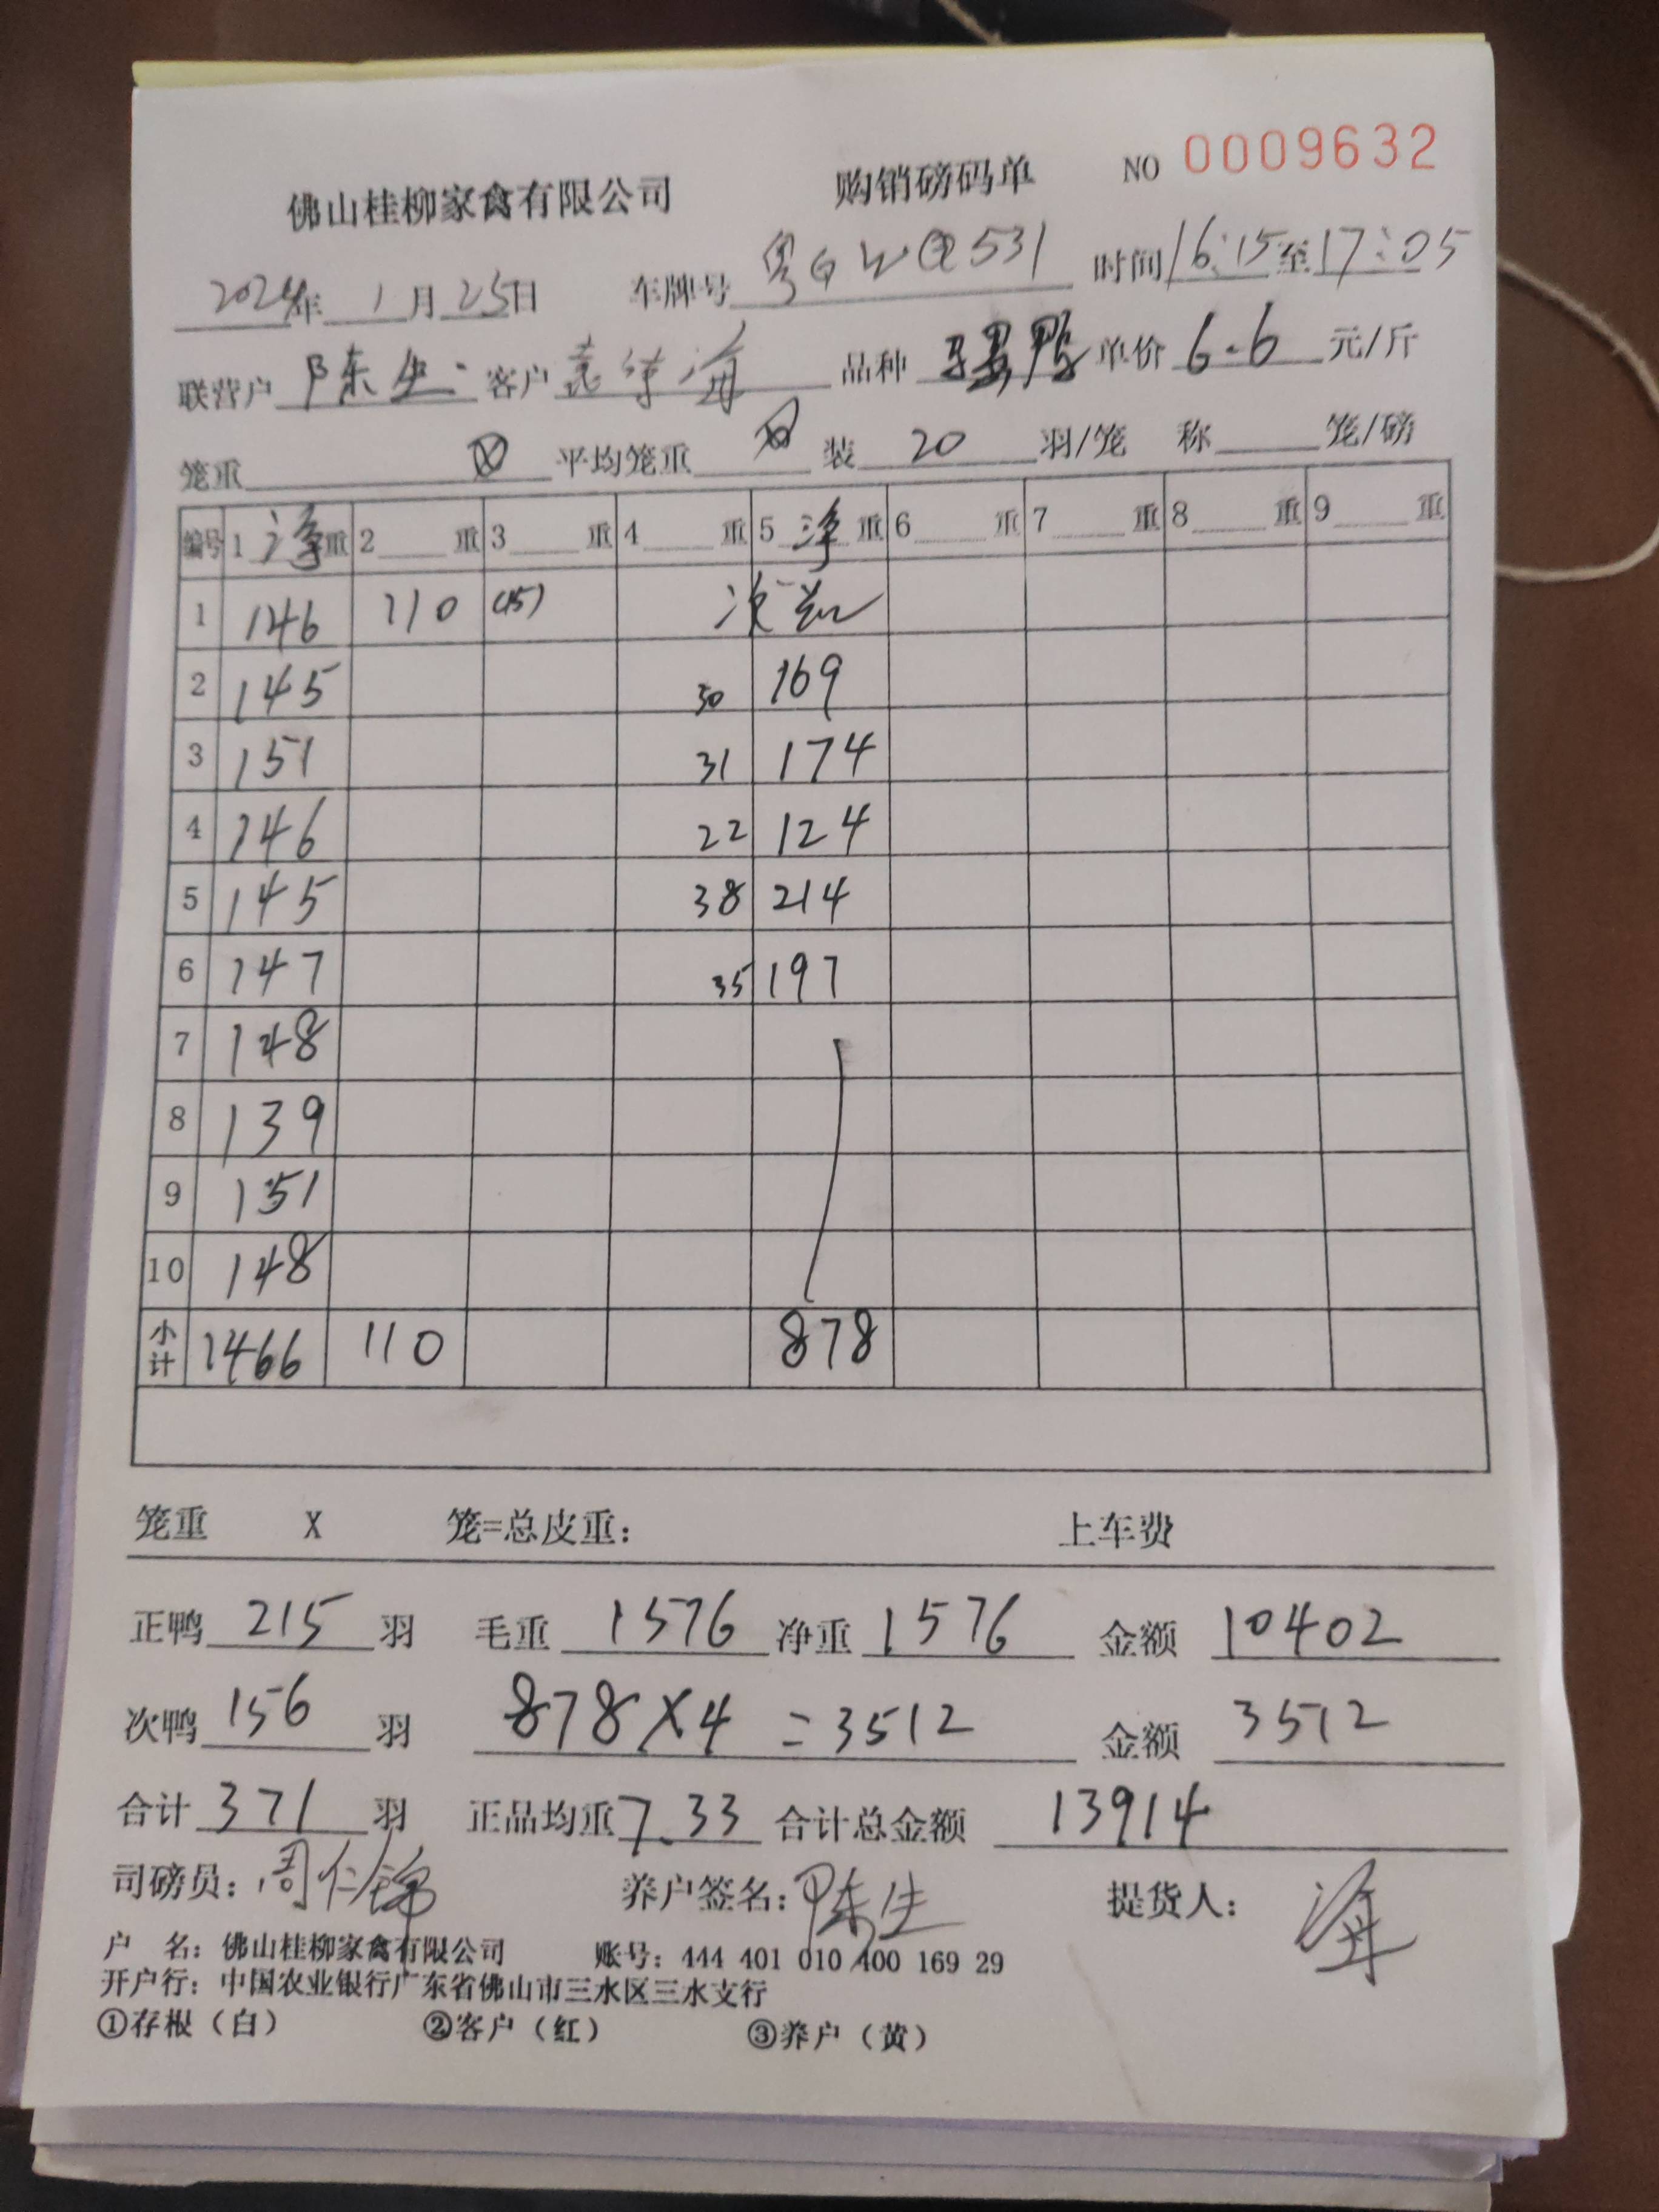 佛山桂柳家禽有限公司 购销磅码单 NO 0009632
2024年 1月 25日 车牌号 粤GWQ531 时间 16:15至17:05
联营户 陈生 客户 海 品种 鸭 单价 6.6 元/斤
笼重 平均笼重 装 20 羽/笼 称 笼/磅
编号 1 净重 2 重 3 重 4 重 5 净重 6 重 7 重 8 重 9 重
1 146 110 (15) 次
2 145 30 169
3 151 31 174
4 146 22 124
5 145 38 214
6 147 35 197
7 148
8 139
9 151
10 148
小计 1466 110 878
笼重 X 笼=总皮重: 上车费
正鸭 215 羽 毛重 1576 净重 1576 金额 10402
次鸭 156 羽 878X4=3512 金额 3512
合计 371 羽 正品均重 7.33 合计总金额 13914
司磅员: 周仁锦 养户签名: 陈生 提货人: 海
户 名: 佛山桂柳家禽有限公司 账号: 444 401 010 400 169 29
开户行: 中国农业银行广东省佛山市三水区三水支行
①存根(白) ②客户(红) ③养户(黄)